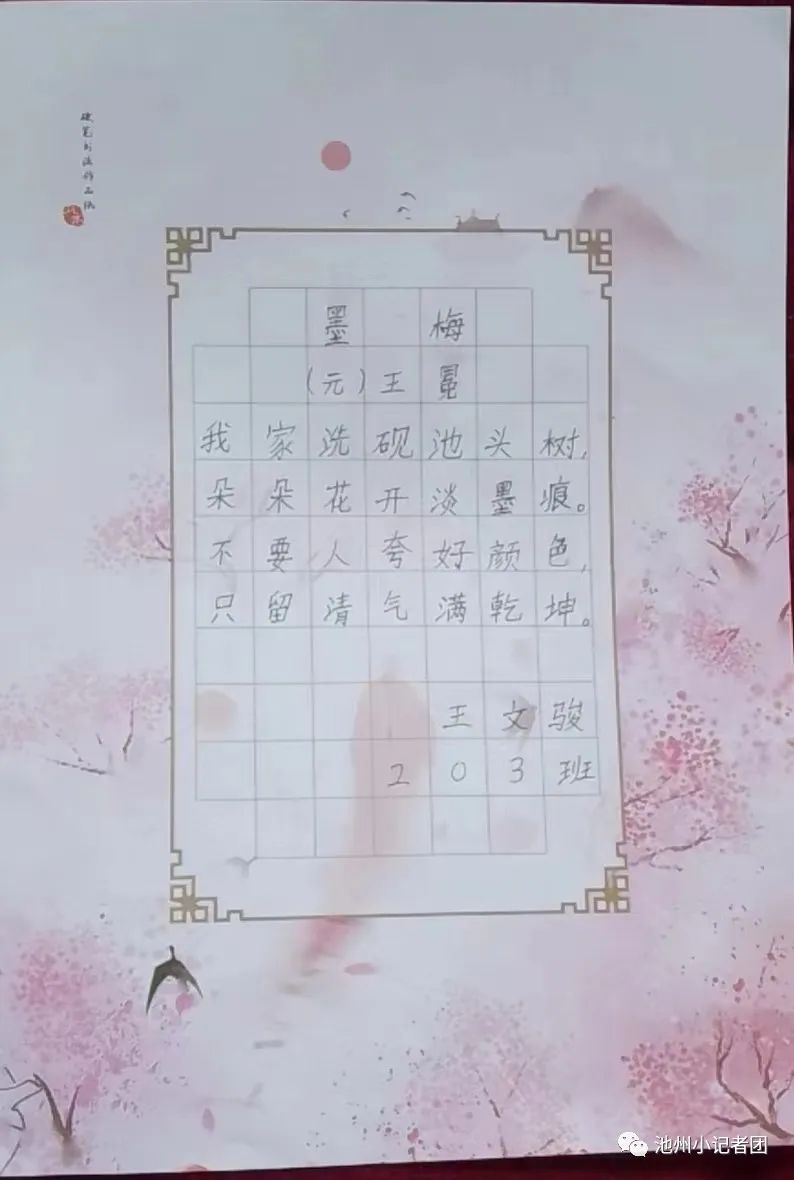 硬笔书法作品纸
墨 梅
（元）王 冕
我家洗砚池头树，
朵朵花开淡墨痕。
不要人夸好颜色，
只留清气满乾坤。
王文骏
203班
池州小记者团